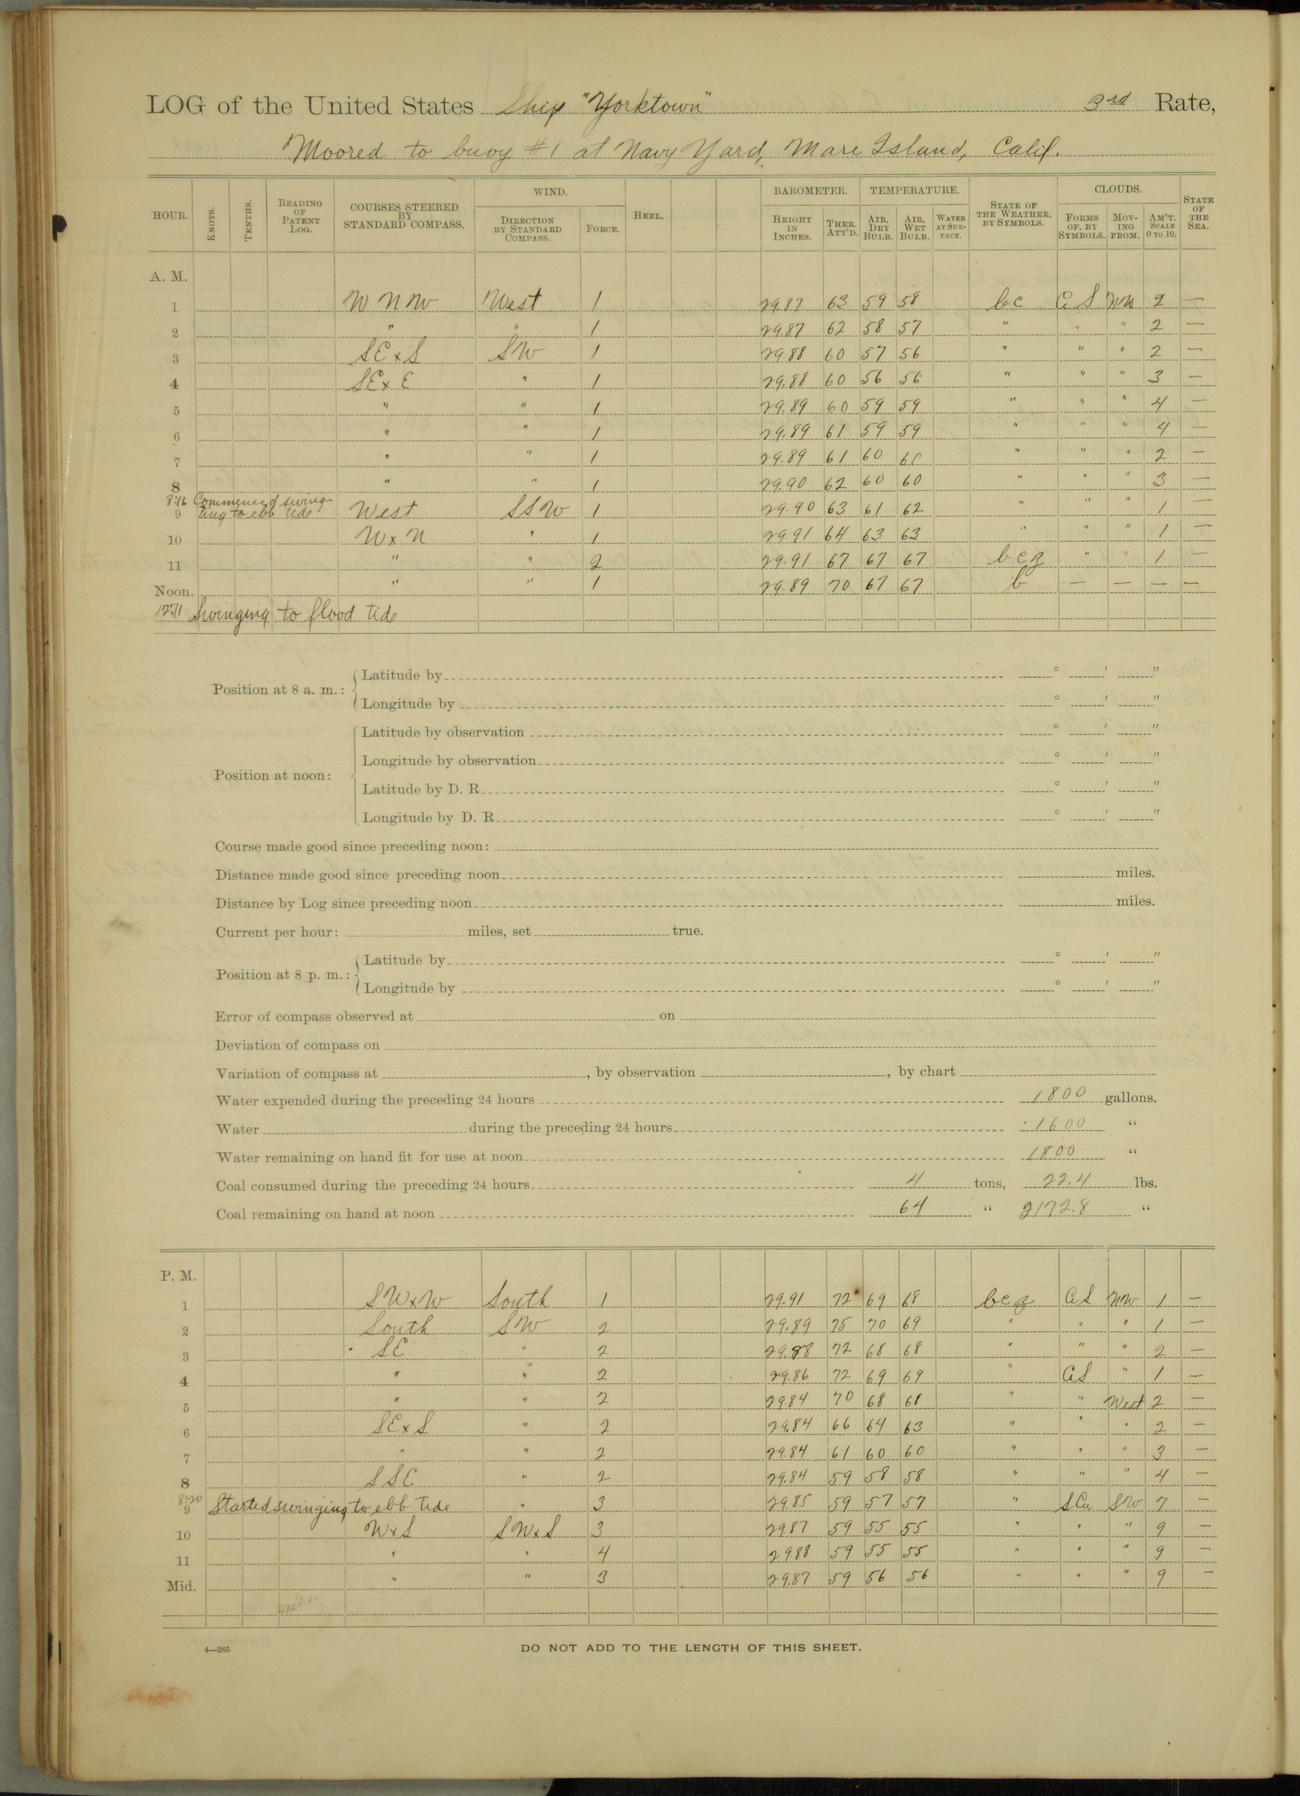 LOG of the United States Ship "Yorktown" 3rd Rate,
Moored to buoy #1 at Navy Yard, Mare Island, Calif.
HOUR. KNOTS. TENTHS. READING OF PATENT LOG. COURSES STEERED BY STANDARD COMPASS. WIND. DIRECTION BY STANDARD COMPASS. FORCE. HEEL. BAROMETER. HEIGHT IN INCHES. THER. ATT'D. TEMPERATURE. AIR, DRY BULB. AIR, WET BULB. WATER AT SURFACE. STATE OF THE WEATHER, BY SYMBOLS. CLOUDS. FORMS OF, BY SYMBOLS. MOVING FROM. AM'T. SCALE 0 TO 10. STATE OF THE SEA.
A. M.
1 W N W West 1 29.87 63 59 58 bc C S NW 2 —
2 " " 1 29.87 62 58 57 " " " 2 —
3 SE x S SW 1 29.88 60 57 56 " " " 2 —
4 SE x E " 1 29.88 60 56 56 " " " 3 —
5 " " 1 29.89 60 59 59 " " " 4 —
6 " " 1 29.89 61 59 59 " " " 4 —
7 " " 1 29.89 61 60 60 " " " 2 —
8 " " 1 29.90 62 60 60 " " " 3 —
8:16 Commenced swing-
9 ing to ebb tide West SSW 1 29.90 63 61 62 " " " 1 —
10 W x N " 1 29.91 64 63 63 " " " 1 —
11 " " 2 29.91 67 67 67 bcz " " 1 —
Noon. " " 1 29.89 70 67 67 b — — — —
12:11 Swinging to flood tide
Position at 8 a. m.: Latitude by ° ' "
Longitude by ° ' "
Position at noon: Latitude by observation ° ' "
Longitude by observation ° ' "
Latitude by D. R. ° ' "
Longitude by D. R. ° ' "
Course made good since preceding noon:
Distance made good since preceding noon miles.
Distance by Log since preceding noon miles.
Current per hour: miles, set true.
Position at 8 p. m.: Latitude by ° ' "
Longitude by ° ' "
Error of compass observed at on
Deviation of compass on
Variation of compass at , by observation , by chart
Water expended during the preceding 24 hours 1800 gallons.
Water during the preceding 24 hours 1600 "
Water remaining on hand fit for use at noon 1800 "
Coal consumed during the preceding 24 hours 4 tons, 22.4 lbs.
Coal remaining on hand at noon 64 " 2172.8 "
P. M.
1 SW x W South 1 29.91 72 69 68 bcz CS NW 1 —
2 South SW 2 29.89 75 70 69 " " " 1 —
3 SE " 2 29.88 72 68 68 " " " 2 —
4 " " 2 29.86 72 69 69 " CS " 1 —
5 " " 2 29.84 70 68 68 " " West 2 —
6 SE x S " 2 29.84 66 64 63 " " " 2 —
7 " " 2 29.84 61 60 60 " " " 3 —
8 SSE " 2 29.84 59 58 58 " " " 4 —
8:20
9 Started swinging to ebb tide " 3 29.85 59 57 57 " SCu SW 7 —
10 W x S SW x S 3 29.87 59 55 55 " " " 9 —
11 " " 4 29.88 59 55 55 " " " 9 —
Mid. " " 3 29.87 59 56 56 " " " 9 —
4—265
DO NOT ADD TO THE LENGTH OF THIS SHEET.